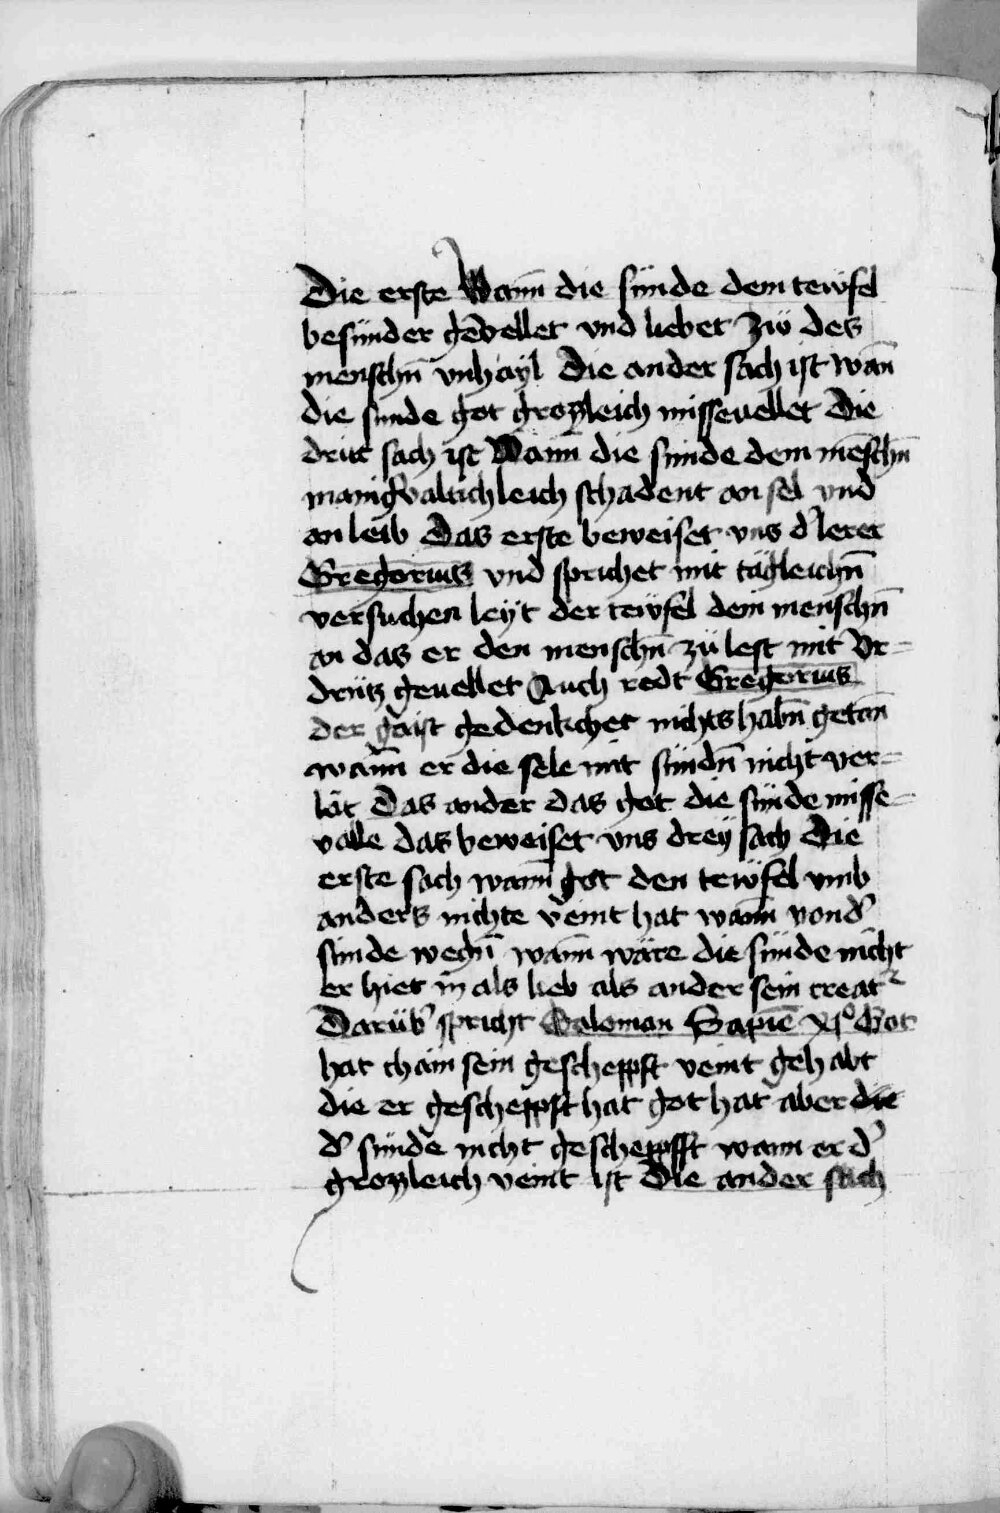 Die erste Wann̄ die sünde dem tewfel
besünder gevellet vnd liebet zw̆ des
menschn̄ vnhayl Die ander sach ist wan̄
die sunde got grozleich missevellet Die
dritt sach ist Wann̄ die sünde dem mēschn̄
manigvaltichleich schadent an sel vnd
an leib Das erste beweiset vns d' lerer
Gregorius vnd sprichet mit tägleichn̄
versuchen leyt der tewfel dem menschn̄
an das er den menschn̄ zü lest mit Vr=
drütz gevellet Auch redt Gregorius
der gaist gedenkchet nichts habn̄ getan̄
wann̄ er die sele mit sündn̄ nicht ver=
lät Das ander das got die sünde misse=
valle das beweiset vns dreÿ sach Die
erste sach wann̄ got den tewfel vmb
anders nichte veint hat wann̄ von d'
sünde wegn̄ wann̄ wäre die sünde nicht
er hiet in als lieb als ander sein creat²
Darüb' spricht Salomon Sapiē xj° Got
hat chain sein gescheppft veint gehabt
die er gescheppft hat got hat aber die
d' sünde nicht gescheppfft wann er d'
grozleich veint ist Die ander sach